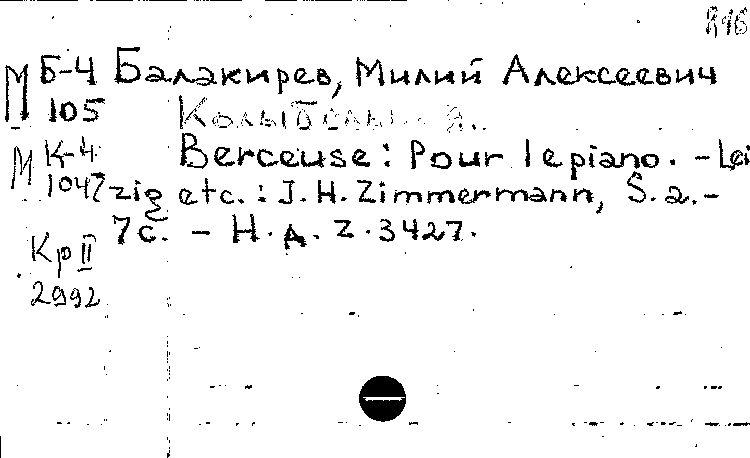 816
М Б-4 Балакирев, Милий Алексеевич
105 Колыбельная.
М К-4 Berceuse: Pour le piano. - Lei
1047 zig etc.: J. H. Zimmermann, S. a. -
7с. - Н. д. Z. 3427.
Кр II
2992